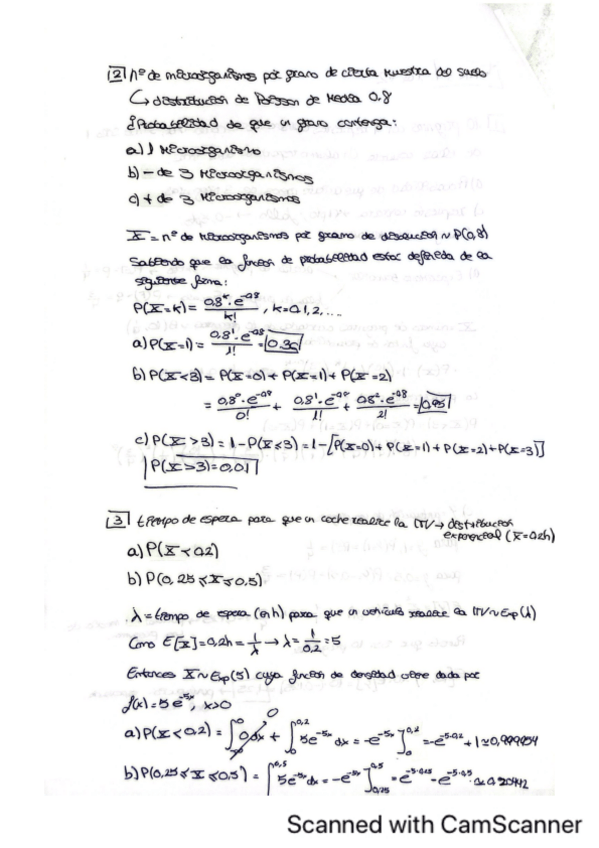 2 Nº de microorganismos por gramo de cierta muestra de suelo
↳ distribución de Poisson de media 0,8
¿Probabilidad de que un gramo contenga:
a) 1 Microorganismo
b) - de 3 Microorganismos
c) + de 3 Microorganismos
X = nº de microorganismos por gramo de disolución ~ P(0,8)
Sabiendo que la función de probabilidad estar definida de la
siguiente forma:
P(X=k) = 0,8^k · e^-0,8 / k! , k=0,1,2,....
a) P(X=1) = 0,8^1 · e^-0,8 / 1! = 0,36
b) P(X<3) = P(X=0) + P(X=1) + P(X=2)
= 0,8^0 · e^-0,8 / 0! + 0,8^1 · e^-0,8 / 1! + 0,8^2 · e^-0,8 / 2! = 0,95
c) P(X>3) = 1 - P(X≤3) = 1 - [P(X=0) + P(X=1) + P(X=2) + P(X=3)]
P(X>3) = 0,01
3 tiempo de espera para que un coche realice la ITV → distribución
exponencial (X=0,2h)
a) P(X<0,2)
b) P(0,25≤X≤0,5)
λ = tiempo de espera (en h) para que un vehículo realice la ITV ~ Exp(λ)
Como E[X] = 0,2h = 1/λ → λ = 1/0,2 = 5
Entonces X ~ Exp(5) cuya función de densidad viene dada por
f(x) = 5e^-5x, x>0
a) P(X<0,2) = ∫ 0dx + ∫ 5e^-5x dx = -e^-5x ] = -e^-5·0,2 + 1 ≃
b) P(0,25≤X≤0,5) = ∫ 5e^-5x dx = -e^-5x ] = e^-5·0,25 - e^-5·0,5 ≃ 0,20442
Scanned with CamScanner